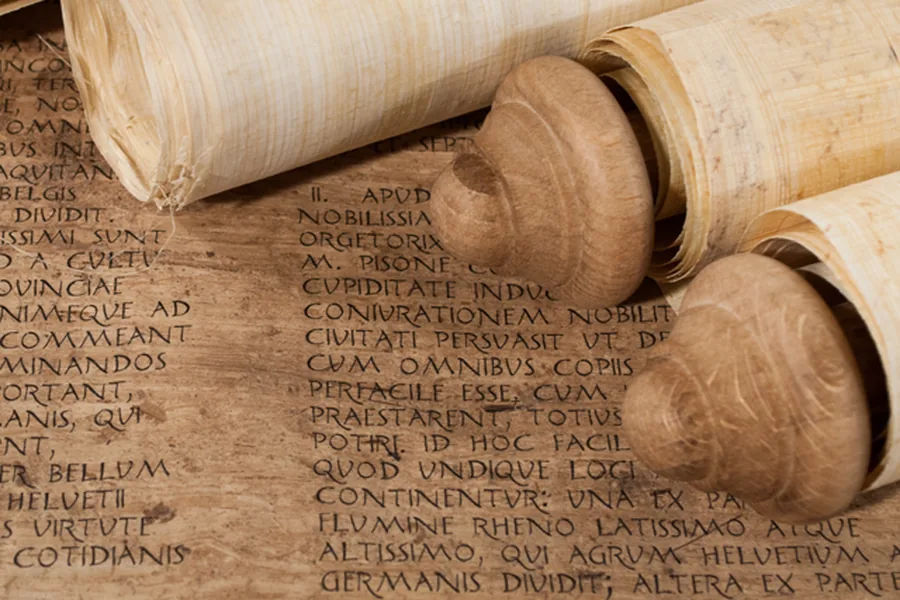 INCO
TER
E, NO
OMNI
BUS INT
AQUITAN
BELGIS
DIVIDIT.
ISSIMI SUNT
D A CULTU
OVINCIAE
NIMEQUE AD
COMMEANT
MINANDOS
PORTANT,
ANIS, QUI
NT,
ER BELLUM
HELVETII
S VIRTUTE
COTIDIANIS
SEPT
II. APUD
NOBILISSIA
ORGETORIX
M. PISONE
CUPIDITATE INDUC
CONIVRATIONEM NOBILIT
CIVITATI PERSUASIT VT DE
CUM OMNIBUS COPIIS
PERFACILE ESSE, CUM
PRAESTARENT, TOTIUS
POTIRI ID HOC FACIL
QUOD UNDIQUE LOCI
CONTINENTVR: UNA EX PA
FLUMINE RHENO LATISSIMO ATQUE
ALTISSIMO, QUI AGRUM HELVETIUM A
GERMANIS DIVIDIT; ALTERA EX PARTE